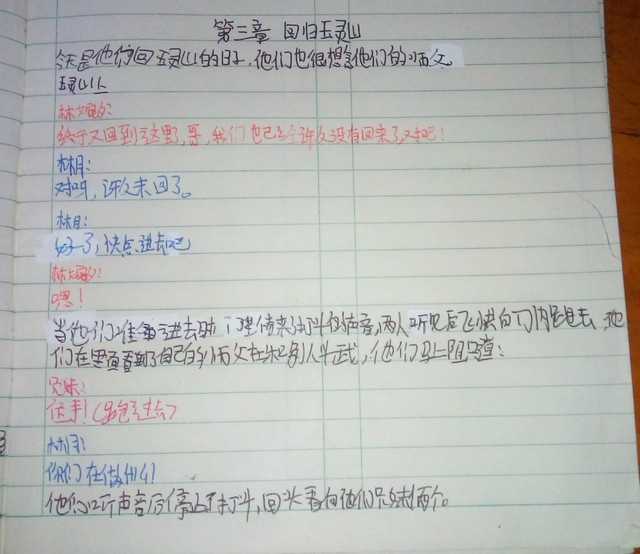 第三章 回归玉灵山
今天是他们回玉灵山的日子，他们也很想念他们的师父
玉灵山上
林
终于又回到这里，哥，我们也已经许久没有回来了，对吧！
林月：
对啊，许久未回了。
林月：
好了，快点进去吧
林
嗯！
当他们准备进去时，门里传来打斗的声音，两人听见后飞快的门内跑进去，他
们在里面看到了自己的师父在和别人斗武，他们马上阻止道：
兄妹：
住手！（跑过去）
林月：
你们在做什么！
他们听声音后停止了打斗，回头看向他们兄妹俩个。